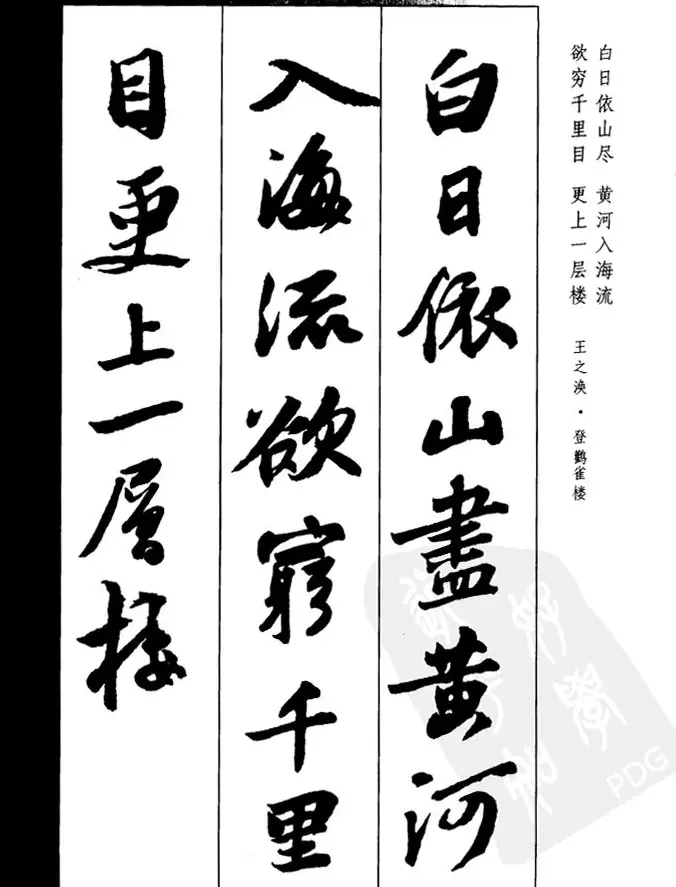 白日依山尽 黄河入海流
欲穷千里目 更上一层楼 王之涣·登鹳雀楼
白日依山盡黄河
入海流欲窮千里
目更上一層樓
PDG